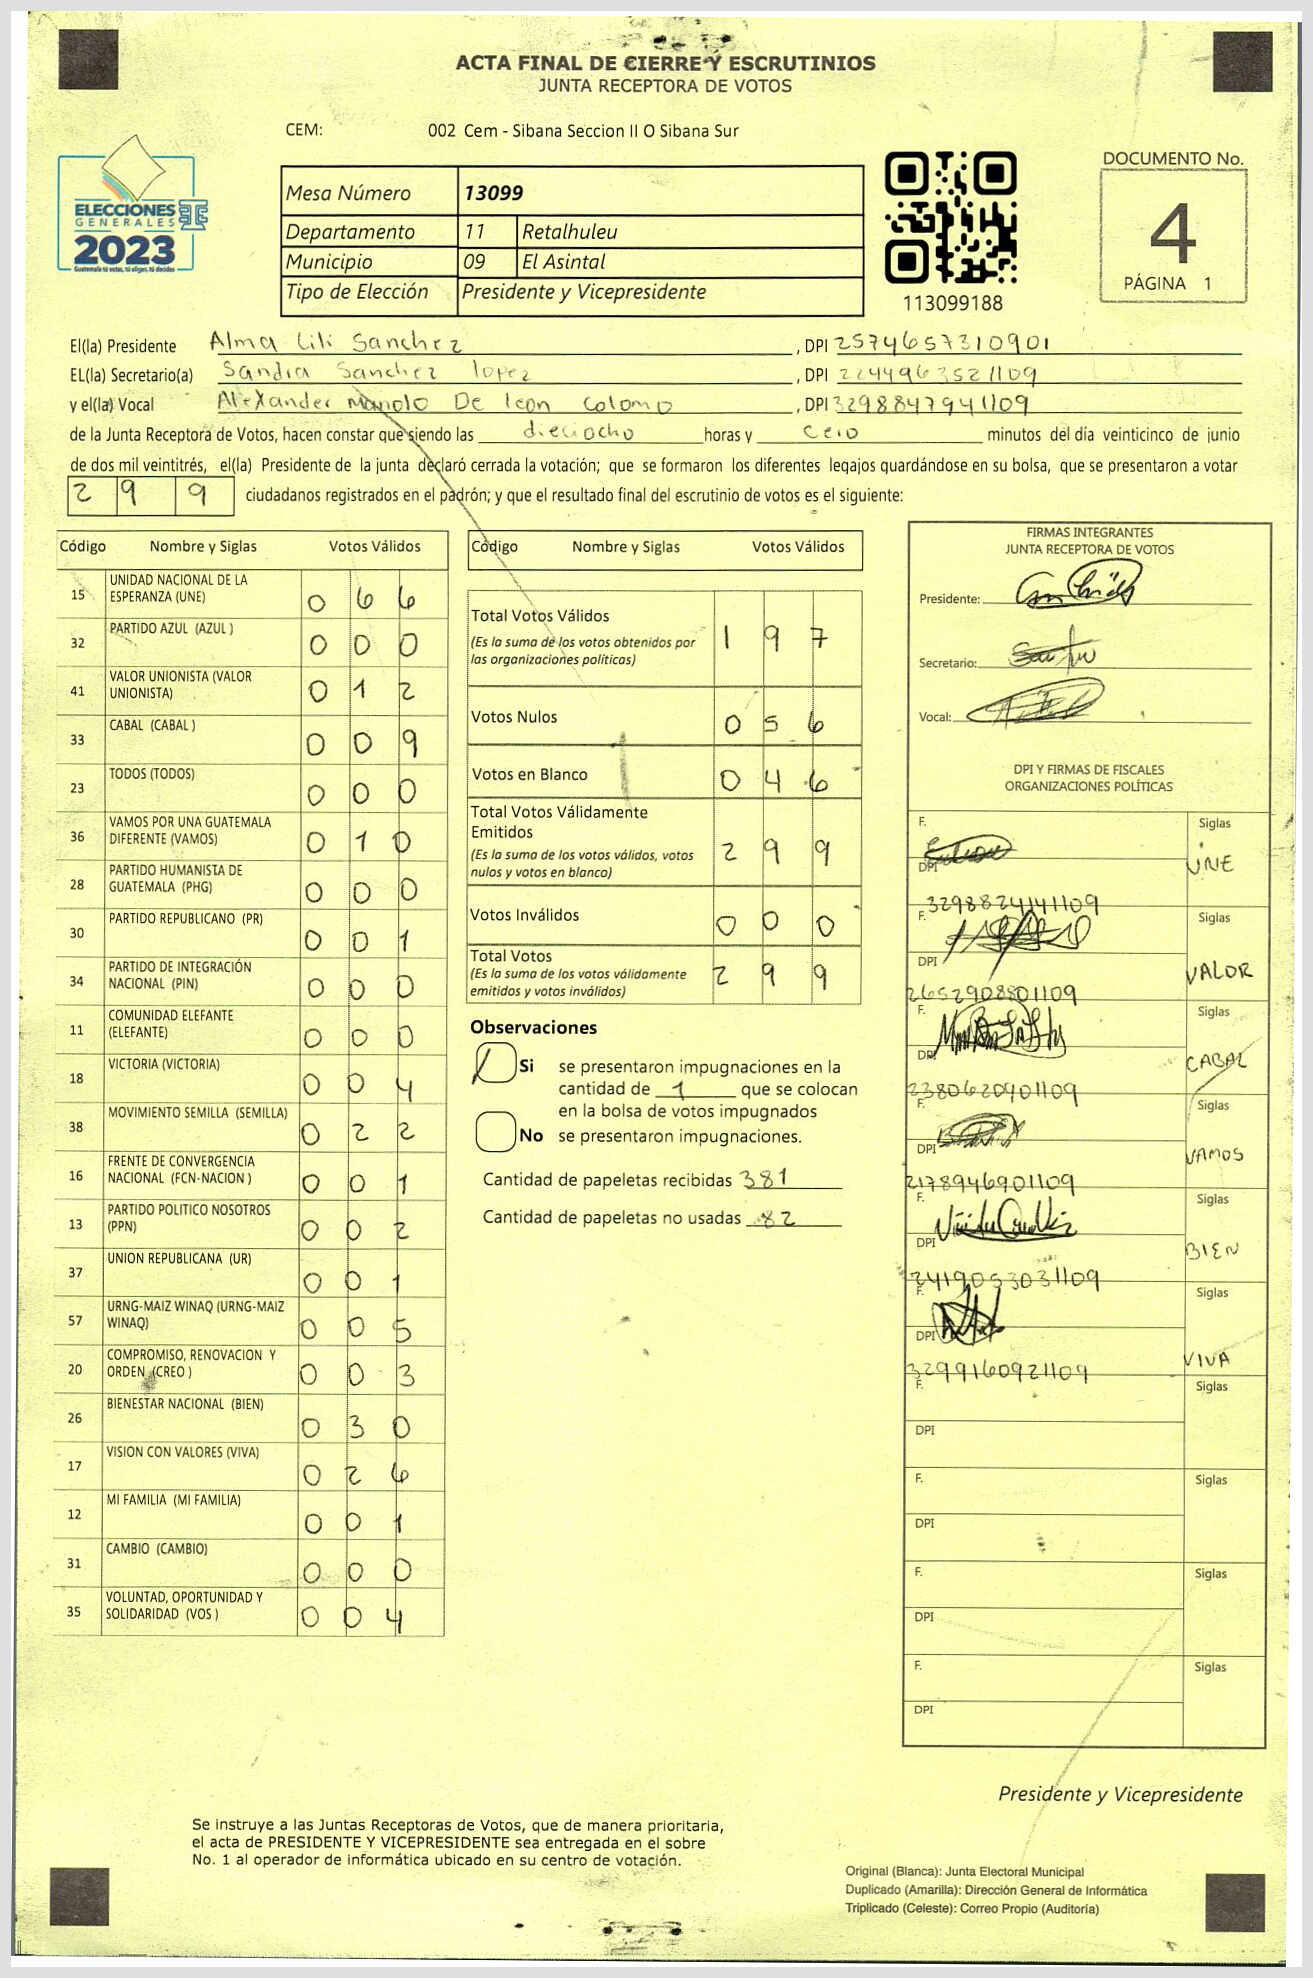 ACTA FINAL DE CIERRE Y ESCRUTINIOS
JUNTA RECEPTORA DE VOTOS
CEM: 002 Cem - Sibana Seccion II O Sibana Sur
ELECCIONES
GENERALES
2023
Guatemala tú votas, tú eliges, tú decides
Mesa Número 13099
Departamento 11 Retalhuleu
Municipio 09 El Asintal
Tipo de Elección Presidente y Vicepresidente
113099188
DOCUMENTO No.
4
PÁGINA 1
El(la) Presidente Alma Lili Sanchez , DPI 2574657310901
EL(la) Secretario(a) Sandra Sanchez lopez , DPI 2244963521109
y el(la) Vocal Alexander Manolo De leon Colomo , DPI 3298847941109
de la Junta Receptora de Votos, hacen constar que siendo las dieciocho horas y cero minutos del día veinticinco de junio
de dos mil veintitrés, el(la) Presidente de la junta declaró cerrada la votación; que se formaron los diferentes legajos guardándose en su bolsa, que se presentaron a votar
2 9 9 ciudadanos registrados en el padrón; y que el resultado final del escrutinio de votos es el siguiente:
Código Nombre y Siglas Votos Válidos
15 UNIDAD NACIONAL DE LA
ESPERANZA (UNE) 0 6 6
32 PARTIDO AZUL (AZUL ) 0 0 0
41 VALOR UNIONISTA (VALOR
UNIONISTA) 0 1 2
33 CABAL (CABAL ) 0 0 9
23 TODOS (TODOS) 0 0 0
36 VAMOS POR UNA GUATEMALA
DIFERENTE (VAMOS) 0 1 0
28 PARTIDO HUMANISTA DE
GUATEMALA (PHG) 0 0 0
30 PARTIDO REPUBLICANO (PR) 0 0 1
34 PARTIDO DE INTEGRACIÓN
NACIONAL (PIN) 0 0 0
11 COMUNIDAD ELEFANTE
(ELEFANTE) 0 0 0
18 VICTORIA (VICTORIA) 0 0 4
38 MOVIMIENTO SEMILLA (SEMILLA) 0 2 2
16 FRENTE DE CONVERGENCIA
NACIONAL (FCN-NACION ) 0 0 1
13 PARTIDO POLITICO NOSOTROS
(PPN) 0 0 2
37 UNION REPUBLICANA (UR) 0 0 1
57 URNG-MAIZ WINAQ (URNG-MAIZ
WINAQ) 0 0 5
20 COMPROMISO, RENOVACION Y
ORDEN (CREO ) 0 0 3
26 BIENESTAR NACIONAL (BIEN) 0 3 0
17 VISION CON VALORES (VIVA) 0 2 6
12 MI FAMILIA (MI FAMILIA) 0 0 1
31 CAMBIO (CAMBIO) 0 0 0
35 VOLUNTAD, OPORTUNIDAD Y
SOLIDARIDAD (VOS ) 0 0 4
Código Nombre y Siglas Votos Válidos
Total Votos Válidos
(Es la suma de los votos obtenidos por
las organizaciones políticas) 1 9 7
Votos Nulos 0 5 6
Votos en Blanco 0 4 6
Total Votos Válidamente
Emitidos
(Es la suma de los votos válidos, votos
nulos y votos en blanco) 2 9 9
Votos Inválidos 0 0 0
Total Votos
(Es la suma de los votos válidamente
emitidos y votos inválidos) 2 9 9
Observaciones
Si se presentaron impugnaciones en la
cantidad de 1 que se colocan
en la bolsa de votos impugnados
No se presentaron impugnaciones.
Cantidad de papeletas recibidas 381
Cantidad de papeletas no usadas 82
FIRMAS INTEGRANTES
JUNTA RECEPTORA DE VOTOS
Presidente:
Secretario:
Vocal:
DPI Y FIRMAS DE FISCALES
ORGANIZACIONES POLÍTICAS
F. Siglas
DPI UNE
3298824141109
F. Siglas
DPI VALOR
2652908801109
F. Siglas
DPI CABAL
2380620901109
F. Siglas
DPI VAMOS
2178946901109
F. Siglas
DPI BIEN
2419053031109
F. Siglas
DPI VIVA
3299160921109
F. Siglas
DPI
F. Siglas
DPI
F. Siglas
DPI
F. Siglas
DPI
Presidente y Vicepresidente
Se instruye a las Juntas Receptoras de Votos, que de manera prioritaria,
el acta de PRESIDENTE Y VICEPRESIDENTE sea entregada en el sobre
No. 1 al operador de informática ubicado en su centro de votación.
Original (Blanca): Junta Electoral Municipal
Duplicado (Amarilla): Dirección General de Informática
Triplicado (Celeste): Correo Propio (Auditoría)